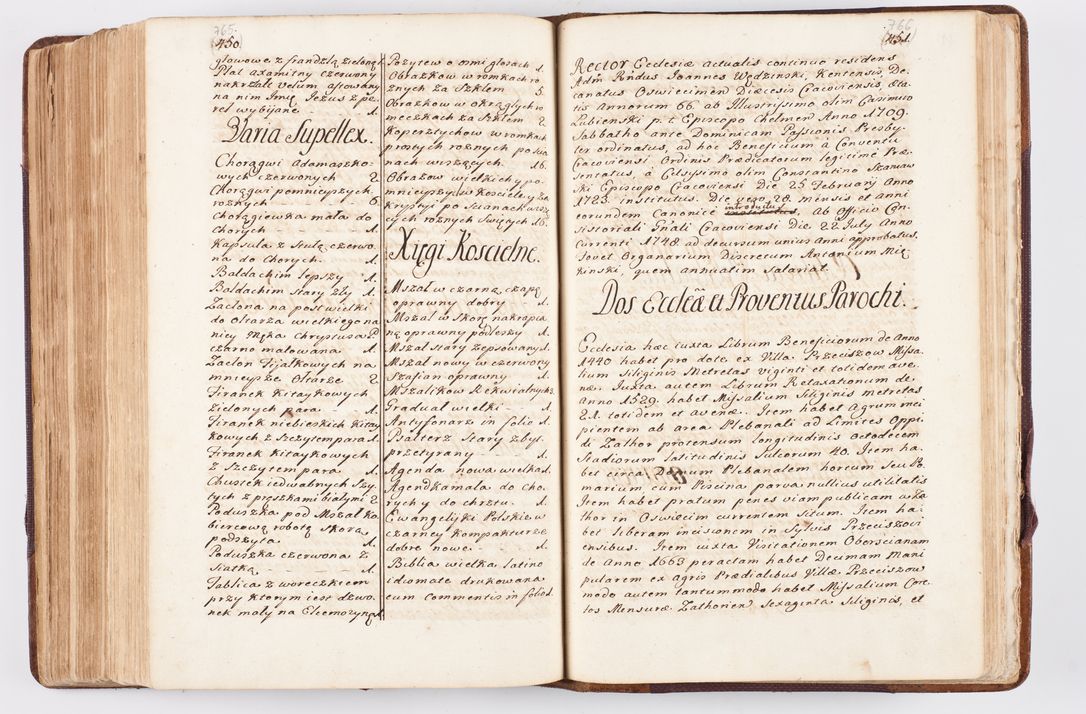 765
450
głowowe z frandzlą zieloną 1.
Plat axamitny czerwony
na krztałt velum aftowany
na nim Imię Jezus z pe
reł wybijane 1.
Varia Supellex.
Chorągwi Adamaszko-
wych czerwonych 2.
Chorągwi pomnieyszych
rożnych 6.
Chorągiewka mała do
Chorych 1.
Kapsula z Stułą czerwo
na do Chorych 1.
Baldachim lepszy 1.
Baldachim stary zły 1.
Zaclona na post wielki
do Ołtarza wielkiego na
niey Męka Chrystusa P.
czarno malowana 1.
Zaclon Fijałkowych na
mnieysze Ołtarze 2.
Firanek Kitaykowych
zielonych para 1.
Firanek niebieskich Kitay
kowych z Szczytem para 1.
Firanek Kitaykowych
z Szczytem para 1.
Chustek iedwabnych Szy-
tych z prązkami białymi 2.
Poduszka pod Mszał Ko
biercową robotą Skorą
podszyta 1.
Poduszka czerwona z
Siatką 1.
Tablica z woreczkiem
przy ktorym iest dzwo
nek mały na Eleemozynę 1.
Pozytew o ośmi głosach 1.
Obrazkow w romkach ro
znych za Szkłem 5.
Obrazkow w okrągłych ro
meczkach za Szkłem 2.
Kopersztychow w romkach
prostych rożnych po ścia
nach wiszących 16.
Obrazow wielkich y po-
mnieyszych w Kosciele y Za
krystyi po Scianach wisz
cych rożnych Swiętych 16.
Xięgi Koscielne.
Mszał w czarną czapę
oprawny dobry 1.
Mszał w Skorę nakrapia
ną oprawny podleyszy 1.
Mszał stary zepsowany 1.
Mszał nowy w czerwony
Szafian oprawny 1.
Mszalikow Rekwialnych 3.
Graduał wielki 1.
Antyfonarz in folio 1.
Psałterz stary zbyt
przetyrany 1.
Agenda nowa wielka 1.
Agendka mała do Cho-
rych y do chrztu 1.
Ewangelijki Polskie w
czarney Kompakturze
dobre nowe 1.
Biblia wielka łatino
idiomate drukowana
cum Commentis in folio 1.
766
451.
Rector Ecclesiæ actualis continuo residens
Adm Rndus Joannes Wędzinski, Kentensis, De-
canatus Oswiecimen Diæcesis Cracoviensis, Æta-
tis Annorum 66. ab Illustrissimo olim Casimiro
Łubienski p. t. Episcopo Chelmen Anno 1709.
Sabbatho ante Dominicam Passionis Presby-
ter ordinatus, ad hoc Beneficium à Conventu
Cracoviensi Ordinis Prædicatorum legitimè Præ-
sentatus, à Celsissimo olim Constantino Szaniaw
ski Episcopo Cracoviensi Die 25 February Anno
1723. institutus. Die vero 28. mensis et anni
eorundem Canonicè introductus, Ab Officio Con
sistoriali Gnali Cracoviensi Die 22 July Anno
Currenti 1748. ad decursum unius Anni approbatus,
Fovet Organarium Discretum Antonium Mię
kinski, quem annuatim Salariat.
Dos Ecclãæ et Proventus Parochi.
Ecclesia hæc iuxta Librum Beneficiorum de Anno
1440 habet pro dote ex Villa Przeciszow Missa-
lium Siliginis Metretas viginti et totidem ave
næ. Iuxta autem Librum Retaxationum de
Anno 1529. habet Missalium Siliginis metretas
21. totidem et avenæ. Item habet Agrum inci
pientem ab area Plebanali ad Limites Oppi-
di Zathor protensum longitudinis octodecem
Studiorum latitudinis Sulcorum 40. Item ha-
bet circa Domum Plebanalem hortum Seu Po-
marium cum Piscina parva nullius utilitatis
Item habet pratum penes viam publicam è Za
thor in Oswiecim currentem Situm. Item ha-
bet liberam incisionem in Sylvis Przeciszovi
ensibus. Item iuxta Visitationem Oborscianam
de Anno 1663 peractam habet Decimam Mani
pularem ex Agris Prædialibus Villæ Przeciszow
modo autem tantummodo habet Missalium Core-
tos Mensuræ Zathorien Sexaginta Siliginis, et